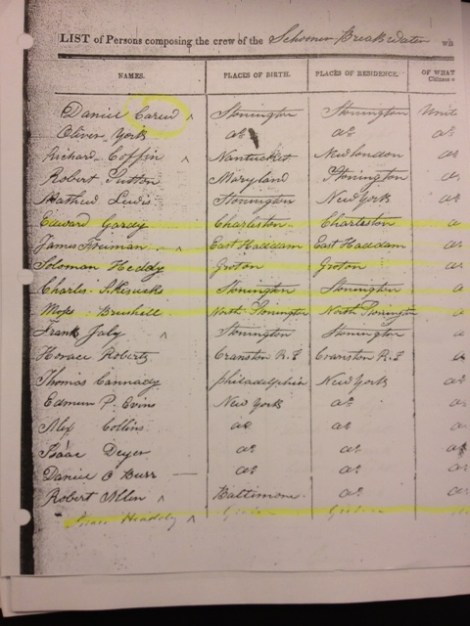 LIST of Persons composing the crew of the Schooner Breakwater
NAMES. PLACES OF BIRTH. PLACES OF RESIDENCE. OF WHAT
Daniel Carew Stonington Stonington Unit
Oliver York do do
Richard Coffin Nantucket New London
Robert Sutton Maryland Stonington
Mathew Lewis Stonington New York
Edward Gardy Charleston Charleston
James Freeman East Haddam East Haddam
Soloman Heddy Groton Groton
Charles Stonington Stonington
Moss Brushell North Stonington North Stonington
Frank July Stonington Stonington
Horace Roberts Cranston R.I. Cranston R.I.
Thomas Cannady Philadelphia New York
Edmun P. Evins New York do
Alex Collins do do
Isaac Dyer do do
Daniel O Burr do do
Robert Allen Baltimore do